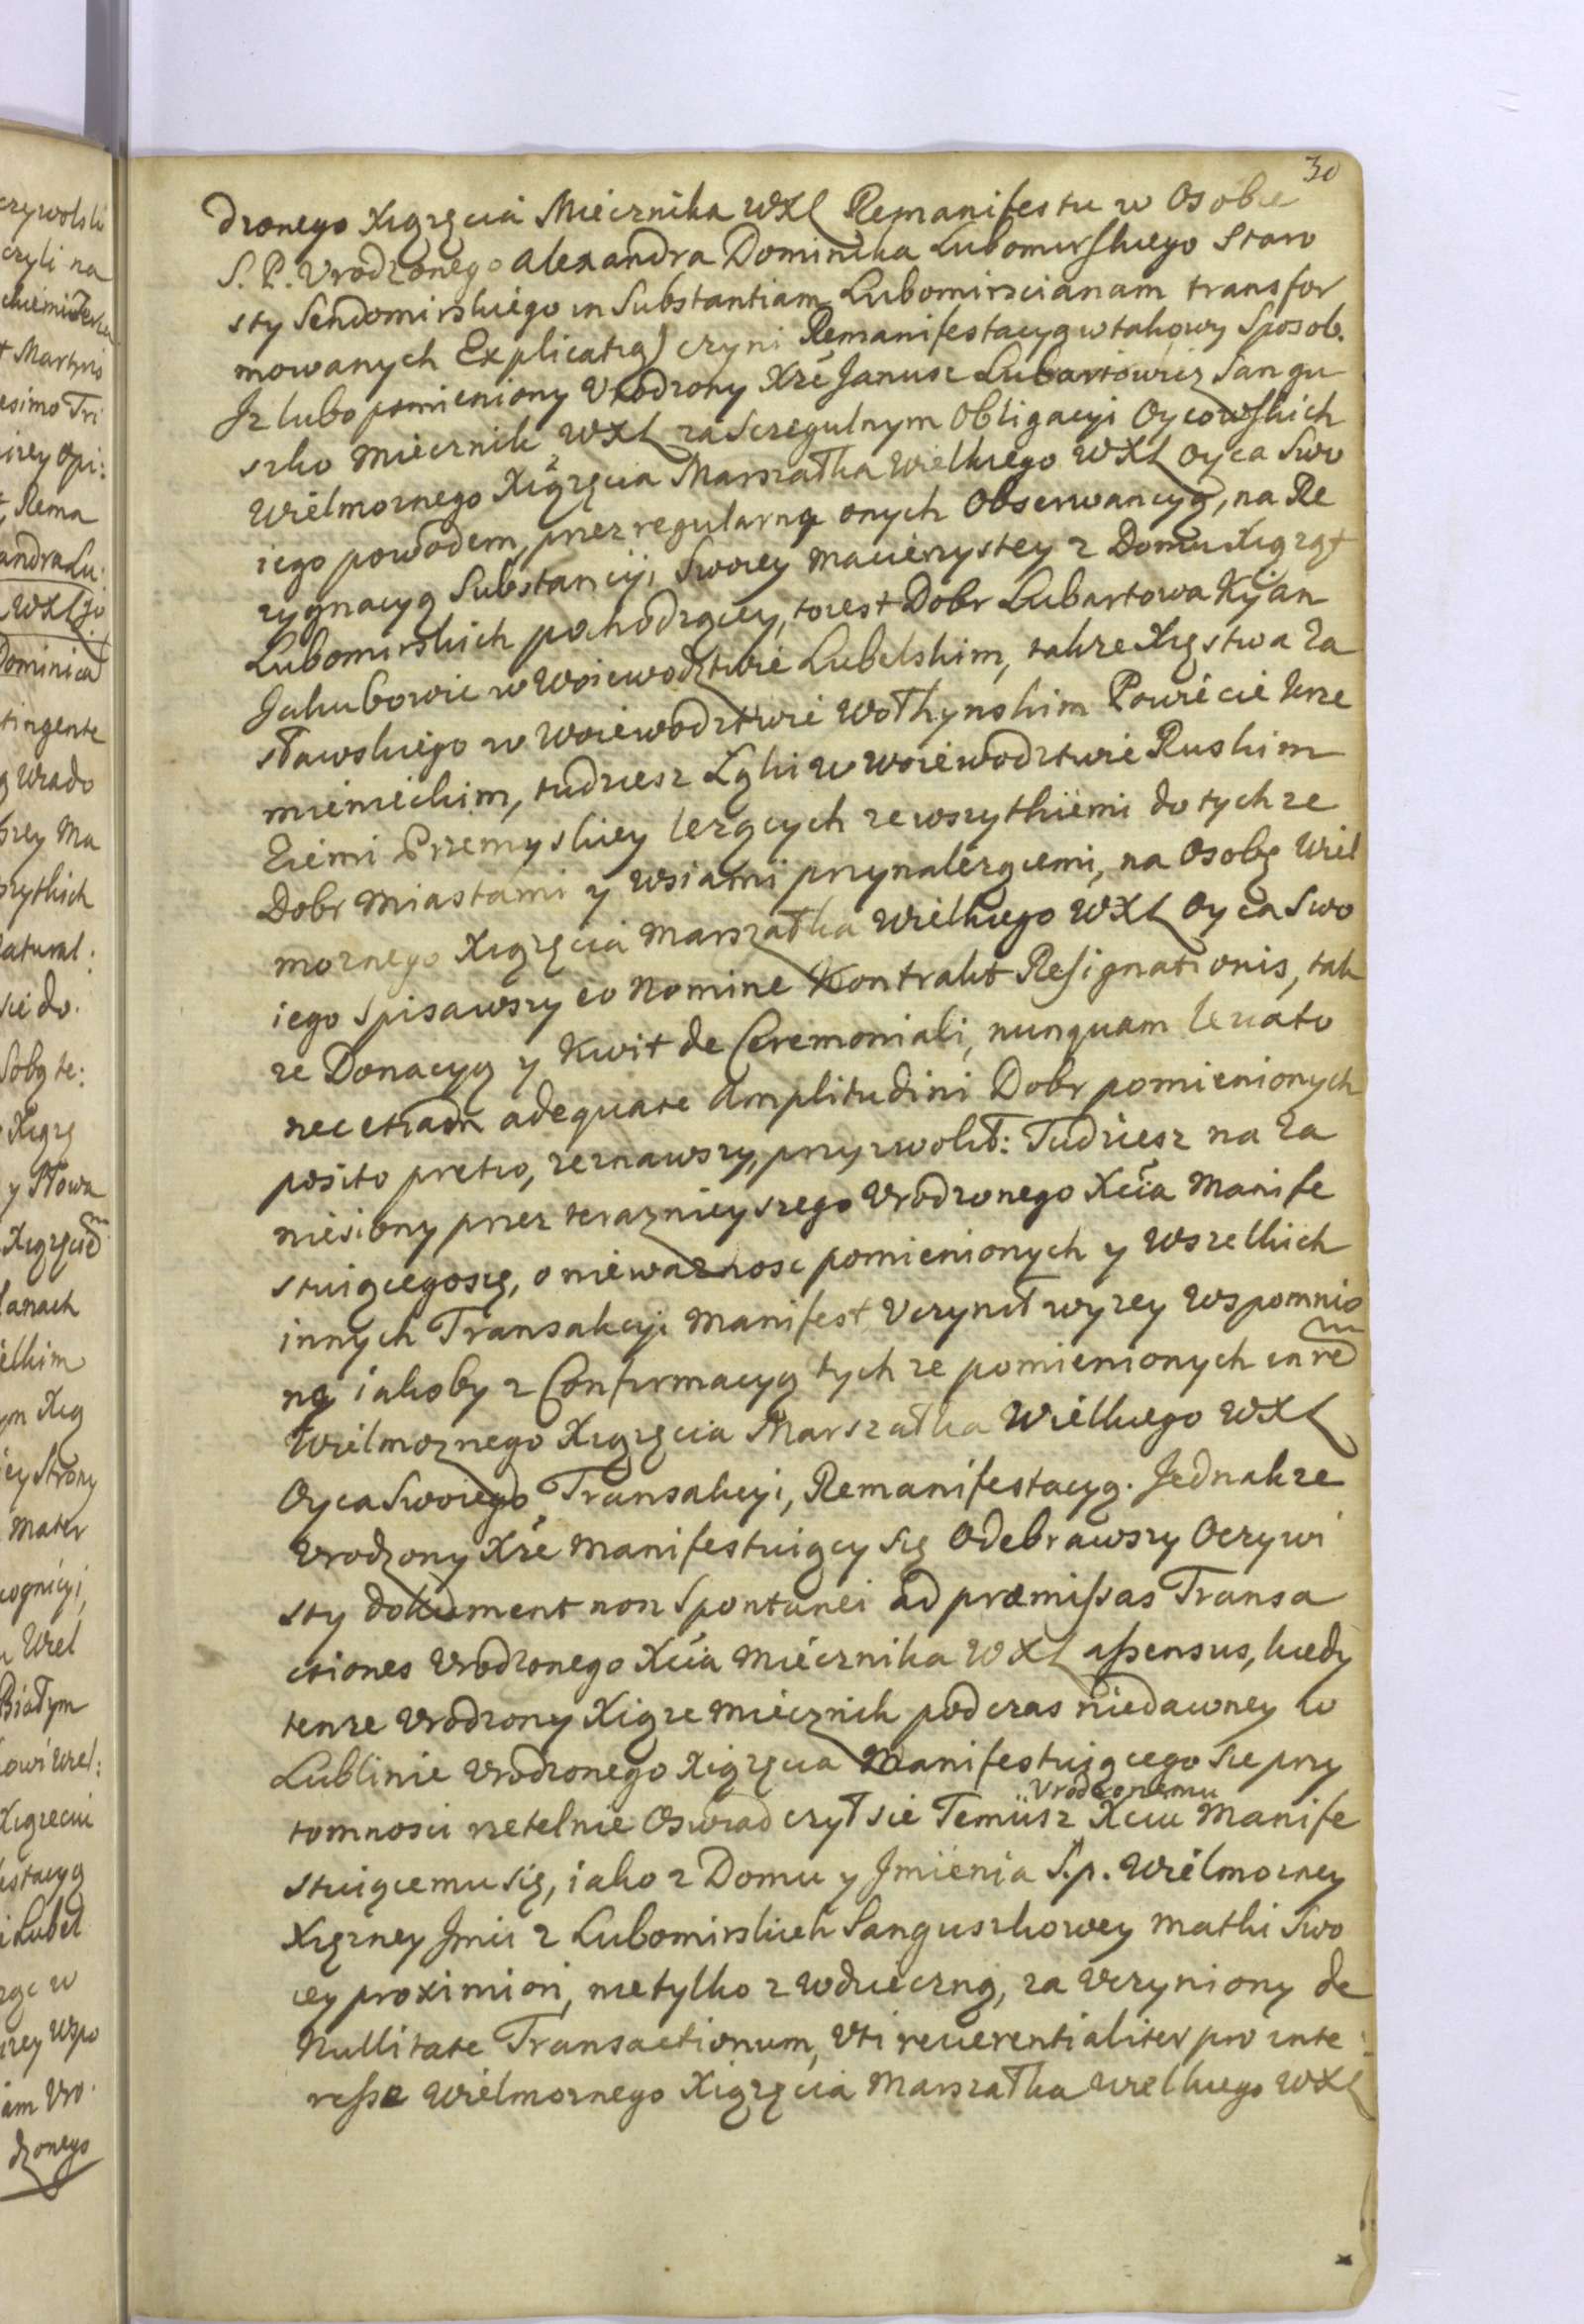 30
dzonego Xiązęcia Miecznika WXL Remanifestu w Osobie
S. P. Vrodzonego Alexandra Dominika Lubomirskiego Staro
sty Sendomirskiego in Substantiam Lubomirscianam transfor
mowanych Explicatią) czyni Remanifestacyą w takowy Sposob.
Iz lubo pomieniony Vrodzony Xże Janusz Lubartowicz Sangu
szko Miecznik WXL za Szczegulnym Obligacyi Oycowskich
Wielmoznego Xiązęcia Marszałka Wielkiego WXL Oyca Swo
iego powodem, przez regularną onych Obserwancyą, na Re
zygnacyą Substancyi Swoiey Macierzystey z Domu Xiąząt
Lubomirskich pochodzącey, to iest Dobr Lubartowa Kijan
Jakubowic w Woiewodztwie Lubelskim, takze Xięstwa Za
sławskiego w Woiewodztwie Wołhynskim Powiecie Krze
mienieckim, tudziesz Łąki w Woiewodztwie Ruskim
Ziemi Przemyskiey lezących ze wszytkiemi do tych ze
Dobr Miastami y Wsiami przynalezącemi, na Osobę Wiel
moznego Xiązęcia Marszałka Wielkiego WXL Oyca Swo
iego Spisawszy eo Nomine Kontrakt Resignationis, tak
ze Donacyą y Kwit de Ceremoniali, nunquam levato
nec etiam adequate Amplitudini Dobr pomienionych
posito pretio, zeznawszy, przyzwolił: Tudziesz na Za
niesiony przez teraznieyszego Vrodzonego Xcia Manife
stuiącegosię, o niewaznosc pomienionych y Wszelkich
innych Transakcyi Manifest Vczynił wyzey Wspomnio
ną iakoby z Confirmacyą tych ze pomienionych in rem
Wielmoznego Xiązęcia Marszałka Wielkiego WXL
Oyca Swoiego Transakcyi, Remanifestacyą. Jednakze
Vrodzony Xże Manifestuiący Się Odebrawszy Oczywi
sty dokument non Spontanei ad præmissas Transa
ctiones Vrodzonego Xcia Miecznika WXL assensus, kiedy
tenze Vrodzony Xiąze Miecznik podczas niedawney w
Lublinie Vrodzonego Xiązęcia Manifestuiącego Sie przy
tomnosci rzetelnie Oswiadczył sie Temusz Vrodzonemu Xciu Manife
stuiącemu Się, iako z Domu y Jmienia S.p. Wielmozney
Xiężney Jmci z Lubomirskich Sanguszkowey Matki Swo
iey proximiori, nie tylko z Wdzieczną, za Vczyniony de
Nullitate Transactionum, Vti reverentialiter pro inte
resse Wielmoznego Xiązęcia Marszałka Wielkiego WXL